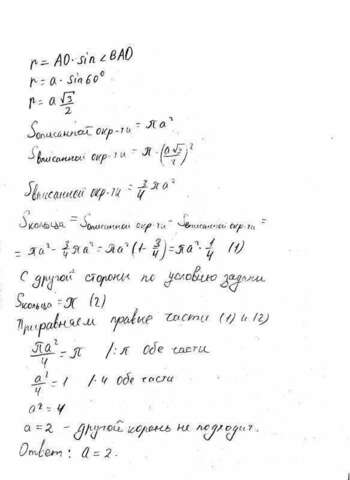 r = AO·sin∠BAO
r = a·sin60°
r = a √3/2
Sописанной окр-ти = πa²
Sвписанной окр-ти = π·(a√3/2)²
Sвписанной окр-ти = 3/4 πa²
Sкольца = Sописанной окр-ти - Sвписанной окр-ти =
= πa² - 3/4 πa² = πa² (1- 3/4) = πa²· 1/4 (1)
С другой стороны по условию задачи
Sкольца = π (2)
Приравняем правые части (1) и (2)
πa²/4 = π /:π обе части
a²/4 = 1 /·4 обе части
a² = 4
a = 2 - другой корень не подходит.
Ответ: a = 2.